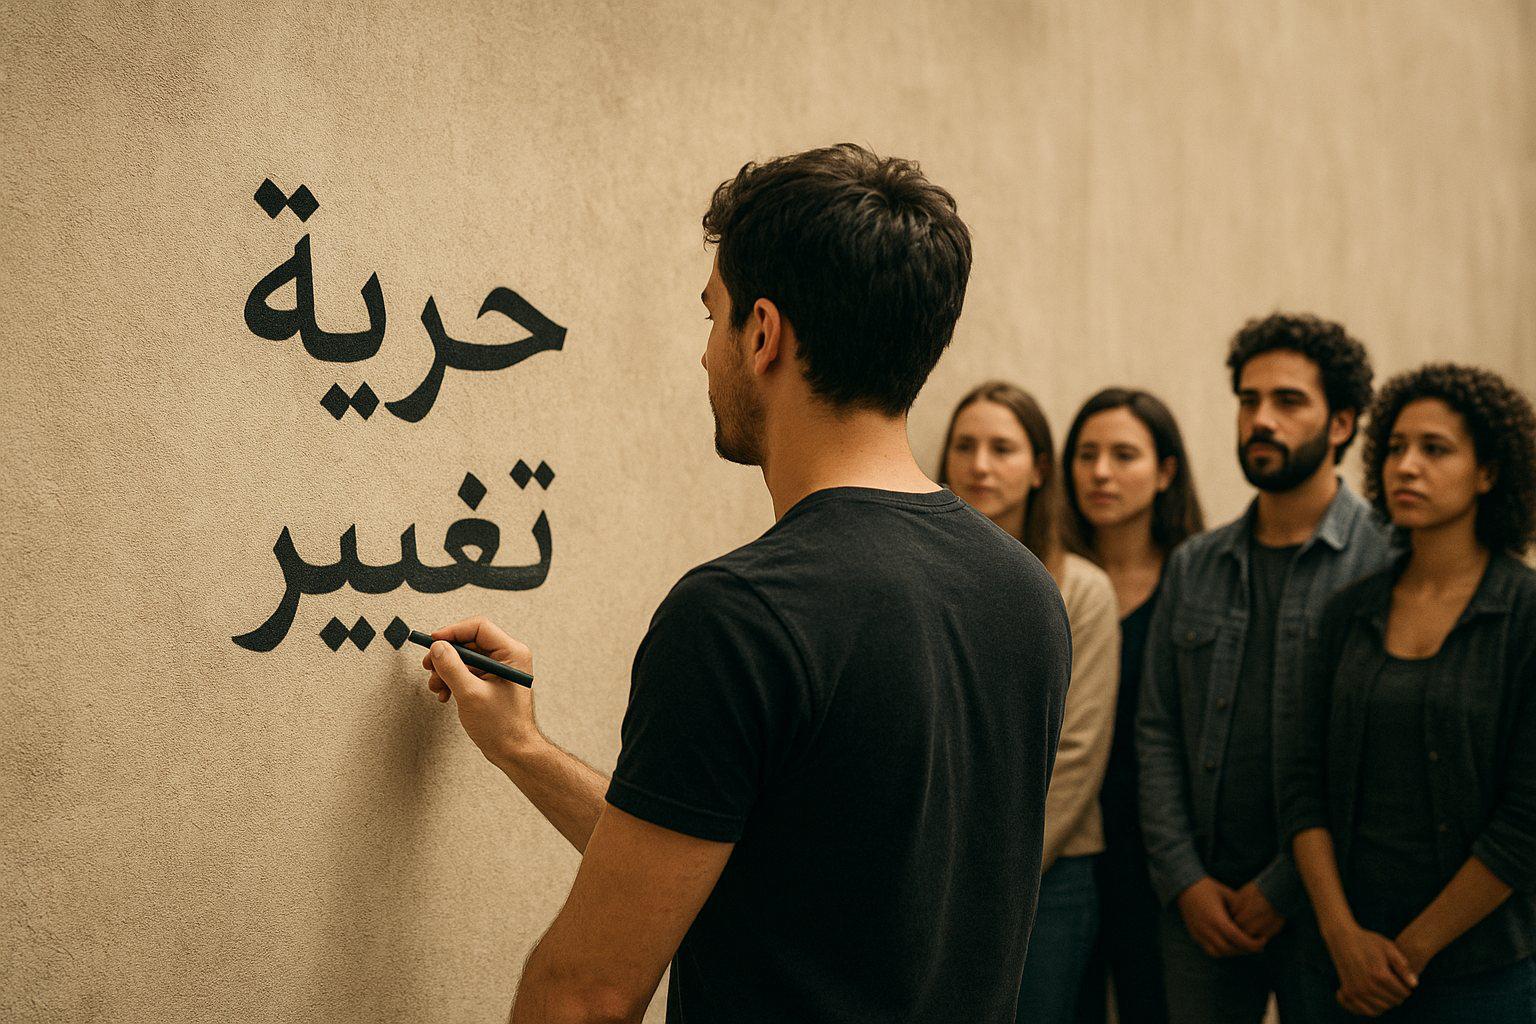 حرية
تغيير